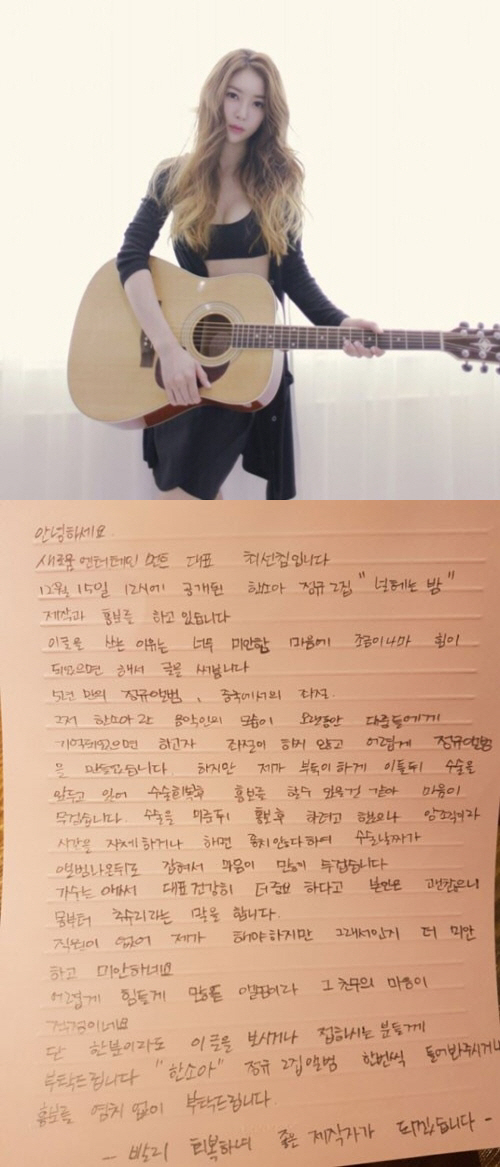 안녕하세요.
새로움 엔터테인먼트 대표 최선겸입니다
12월 15일 12시에 공개된 한소아 정규 2집 "널 헤는 밤"
제작과 홍보를 하고있습니다
이글을 쓰는 이유는 너무 미안한 마음에 조금이나마 힘이
되었으면 해서 글을 써봅니다
5년 만의 정규앨범, 중국에서의 좌절.
그저 한소아란 음악인의 모습이 오랫동안 대중들에게
기억되었으면 하고자 좌절이 하지 않고 어렵게 정규앨범
을 만들었습니다. 하지만 제가 부득이하게 이틀뒤 수술을
앞두고 있어 수술회복후 홍보를 할수 있을것 같아 마음이
무겁습니다. 수술을 미룬뒤 홍보후 하려고 했으나 암조직이라
시간을 지체하거나 하면 좋지않다하여 수술날짜가
앨범나온뒤로 잡혀서 마음이 많이 무겁습니다
가수는 옆에서 대표건강이 더중요 하다고 본인은 괜찮으니
몸부터 추슬리라는 말을 합니다.
직원이 없어 제가 해야하지만 그래서인지 더 미안
하고 미안하네요
어렵게 힘들게 만든 앨범이라 그 한소아의 마음이
걱정이네요
단 한분이라도 이글을 보시거나 접하시는 분들께
부탁드립니다 "한소아" 정규 2집앨범 한번씩 들어봐주시거나
홍보를 염치 없이 부탁드립니다.
- 빨리 회복하여 좋은 제작자가 되겠습니다 -